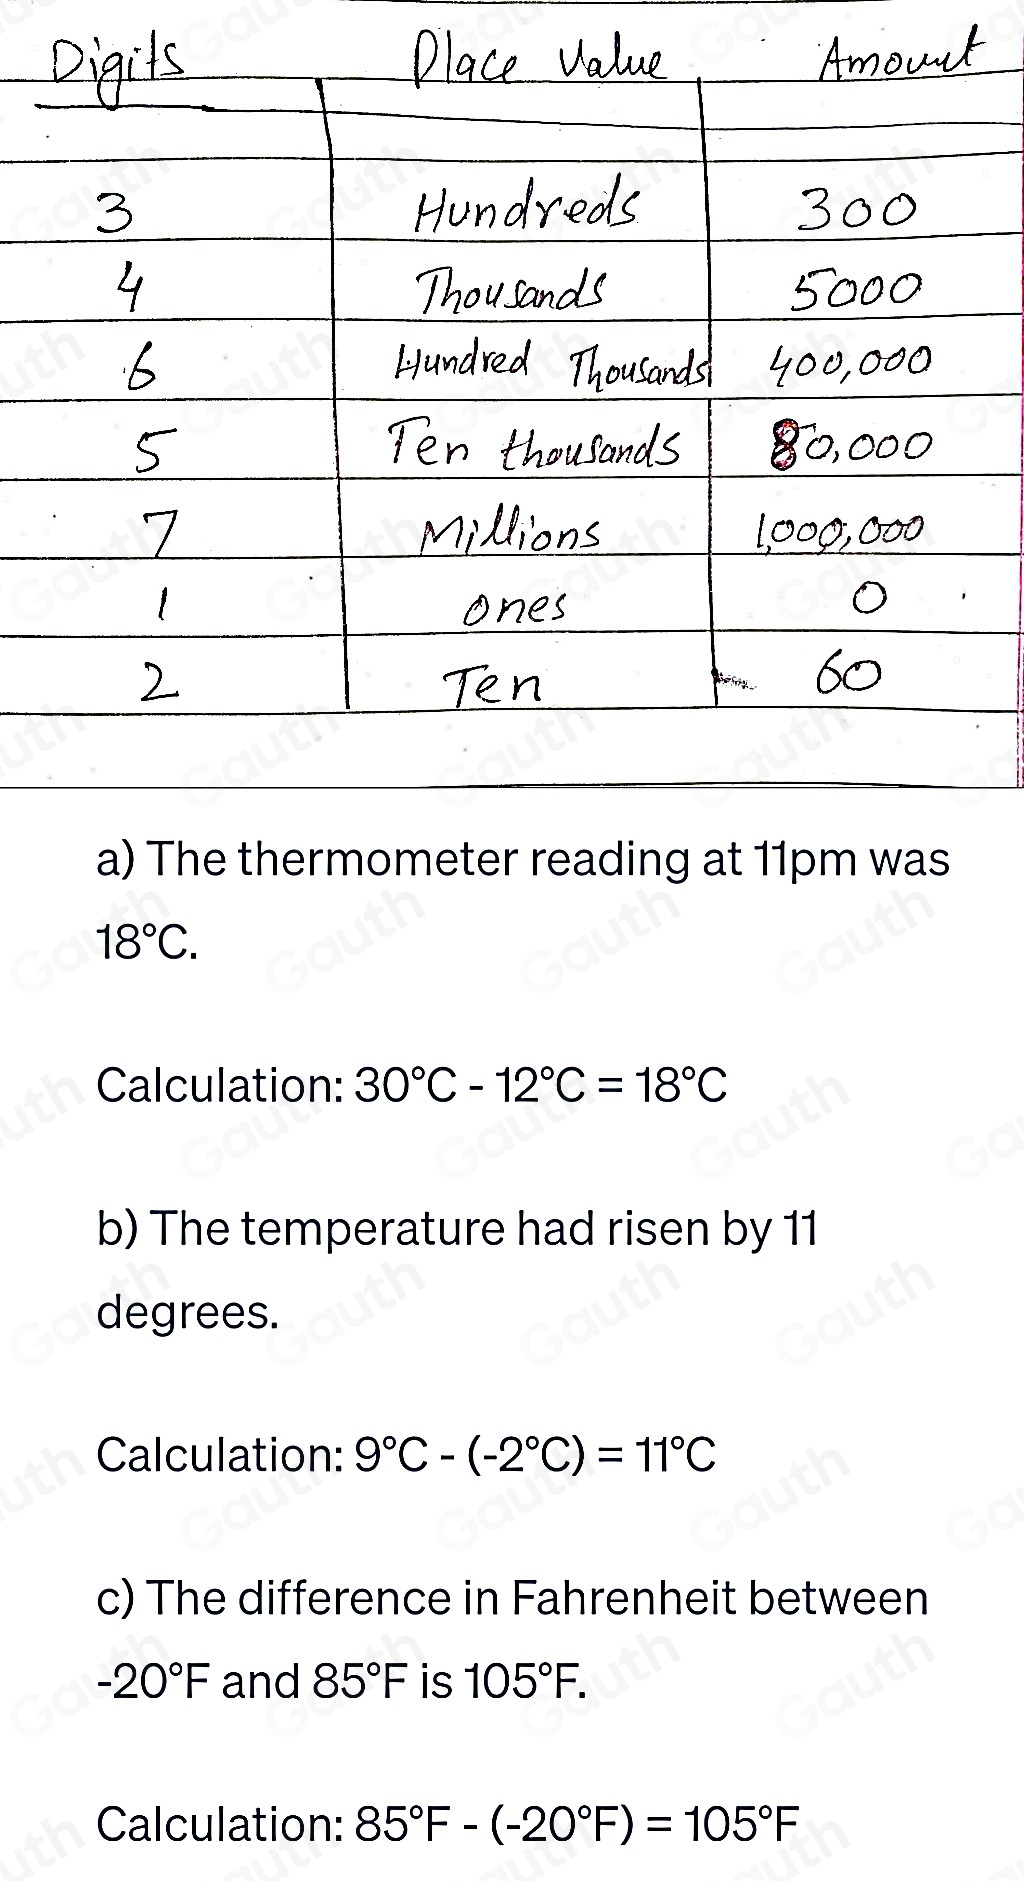 Digits Place Value Amount
3 Hundreds 300
4 Thousands 5000
6 Hundred Thousands 400,000
5 Ten thousands 80,000
7 Millions 1,000,000
1 ones 0
2 Ten 60
a) The thermometer reading at 11pm was
18°C.
Calculation: 30°C - 12°C = 18°C
b) The temperature had risen by 11
degrees.
Calculation: 9°C - (-2°C) = 11°C
c) The difference in Fahrenheit between
-20°F and 85°F is 105°F.
Calculation: 85°F - (-20°F) = 105°F
Gauth